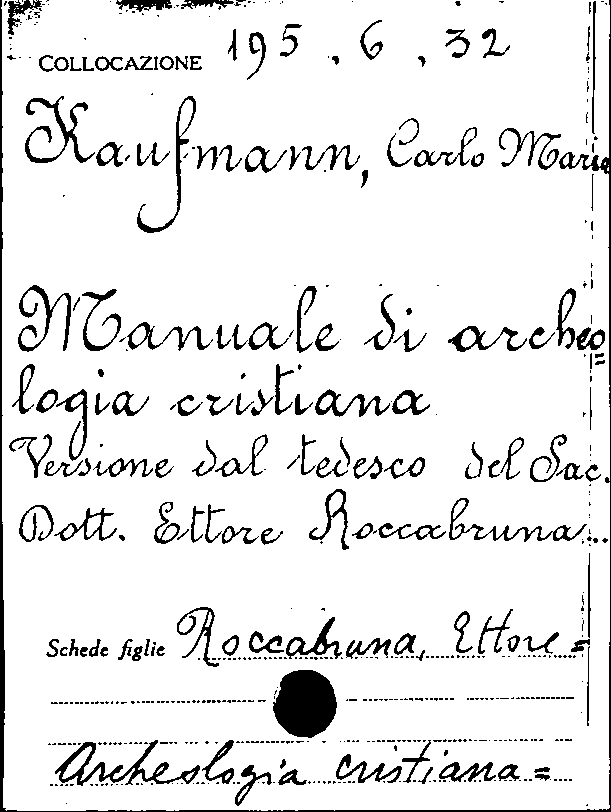 COLLOCAZIONE 195 . 6 . 32
Kaufmann, Carlo Maria
Manuale di archeo=
logia cristiana
Versione dal tedesco del Sac.
Dott. Ettore Roccabruna...
Schede figlie Roccabruna, Ettore =
Archeologia cristiana =